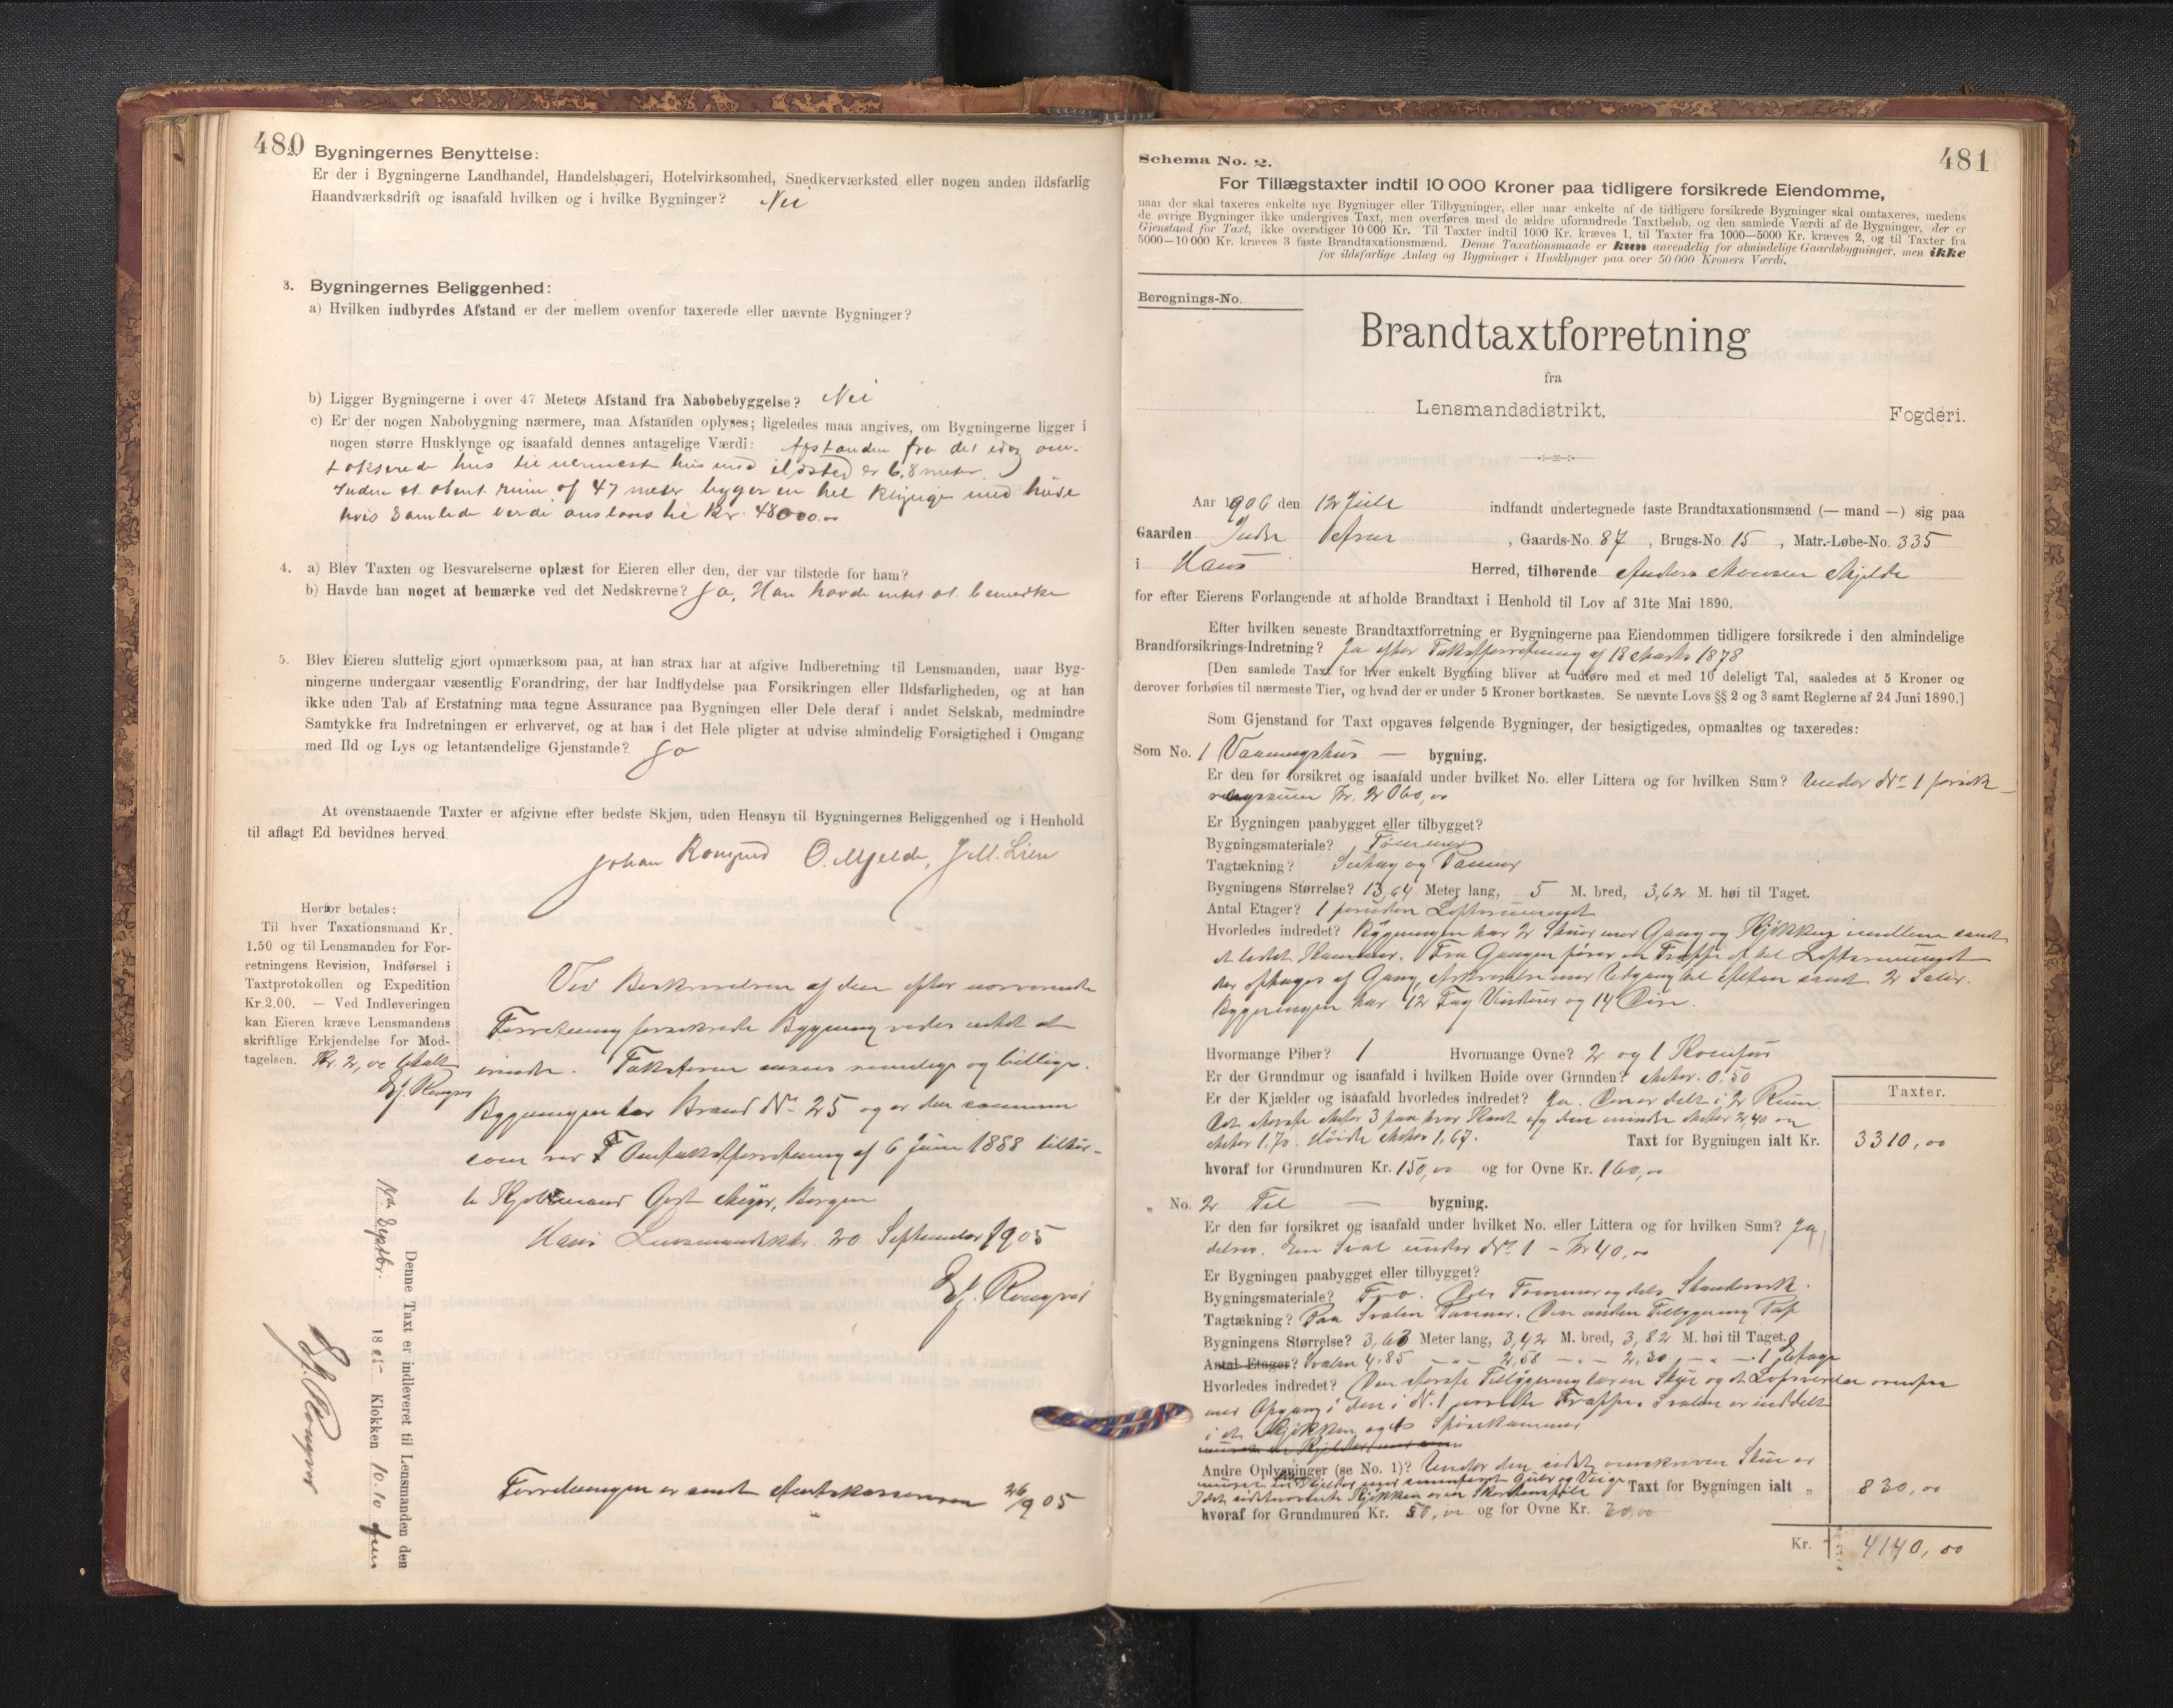 480
2. Bygningernes Benyttelse:
Er der i Bygningerne Landhandel, Handelsbageri, Hotelvirksomhed, Snedkerværksted eller nogen anden ildsfarlig
Haandværksdrift og isaafald hvilken og i hvilke Bygninger? Nei
3. Bygningernes Beliggenhed:
a) Hvilken indbyrdes Afstand er der mellem ovenfor taxerede eller nævnte Bygninger?
b) Ligger Bygningerne i over 47 Meters Afstand fra Nabobebyggelse? Nei
c) Er der nogen Nabobygning nærmere, maa Afstanden oplyses; ligeledes maa angives, om Bygningerne ligger i
nogen større Husklynge og isaafald dennes antagelige Værdi: Afstanden fra det idag om-
takserede hus til nærmest hus med ildsted er 6,8 meter.
Inden et abent rum af 47 meter ligger en hel klynge med huse
hvis samlede verdi anslaaes til Kr. 48000.00
4. a) Blev Taxten og Besvarelserne oplæst for Eieren eller den, der var tilstede for ham?
b) Havde han noget at bemærke ved det Nedskrevne? Ja, Han havde intet at bemerke
5. Blev Eieren sluttelig gjort opmærksom paa, at han strax har at afgive Indberetning til Lensmanden, naar Byg-
ningerne undergaar væsentlig Forandring, der har Indflydelse paa Forsikringen eller Ildsfarligheden, og at han
ikke uden Tab af Erstatning maa tegne Assurance paa Bygningen eller Dele deraf i andet Selskab, medmindre
Samtykke fra Indretningen er erhvervet, og at han i det Hele pligter at udvise almindelig Forsigtighed i Omgang
med Ild og Lys og letantændelige Gjenstande? Ja
At ovenstaaende Taxter er afgivne efter bedste Skjøn, uden Hensyn til Bygningernes Beliggenhed og i Henhold
til aflagt Ed bevidnes herved
Johan O. Mjelde, J. M. Lien
Herfor betales:
Til hver Taxationsmand Kr.
1.50 og til Lensmanden for For-
retningens Revision, Indførsel i
Taxtprotokollen og Expedition
Kr. 2.00. — Ved Indleveringen
kan Eieren kræve Lensmandens
skriftlige Erkjendelse for Mod-
tagelsen. Kr. 2,00 betalt
Ved Beskrivelsen af den efter nærværende
Forretning forsikrede Bygning vides intet at
erindre. Taksterne ansees rimelige og billige.
Bygningen har Brand No. 25 og er den samme
som ved Omtakstforretning af 6 Juni 1888 tilhør-
te Kjøbmand Bergen
Haus Lensmandsktr. 20 September 1905
Denne Taxt er indleveret til Lensmanden den
Septbr. 1805 Klokken 10.10 fm
Forretningen er sendt Amtskassereren 26/9 05
481
Schema No. 2.
For Tillægstaxter indtil 10 000 Kroner paa tidligere forsikrede Eiendomme,
naar der skal taxeres enkelte nye Bygninger eller Tilbygninger, eller naar enkelte af de tidligere forsikrede Bygninger skal omtaxeres, medens
de øvrige Bygninger ikke undergives Taxt, men overføres med de ældre uforandrede Taxtbeløb, og den samlede Værdi af de Bygninger, der er
Gjenstand for Taxt, ikke overstiger 10 000 Kr. Til Taxter indtil 1000 Kr. kræves 1, til Taxter fra 1000—5000 Kr. kræves 2, og til Taxter fra
5000—10 000 Kr. kræves 3 faste Brandtaxationsmænd. Denne Taxationsmaade er kun anvendelig for almindelige Gaardsbygninger, men ikke
for ildsfarlige Anlæg og Bygninger i Husklynger paa over 50 000 Kroners Værdi.
Beregnings-No.
Brandtaxtforretning
fra
Lensmandsdistrikt, Fogderi.
Aar 1906 den 12 Juli indfandt undertegnede faste Brandtaxationsmænd (— mand —) sig paa
Gaarden Indre Arna, Gaards-No. 87, Brugs-No. 15, Matr.-Løbe-No. 335
i Haus Herred, tilhørende Anders Monsen Mjelde
for efter Eierens Forlangende at afholde Brandtaxt i Henhold til Lov af 31te Mai 1890.
Efter hvilken seneste Brandtaxtforretning er Bygningerne paa Eiendommen tidligere forsikrede i den almindelige
Brandforsikrings-Indretning? Ja efter Takstforretning af 18 Marts 1878
[Den samlede Taxt for hver enkelt Bygning bliver at udføre med et med 10 deleligt Tal, saaledes at 5 Kroner og
derover forhøies til nærmeste Tier, og hvad der er under 5 Kroner bortkastes. Se nævnte Lovs §§ 2 og 3 samt Reglerne af 24 Juni 1890.]
Som Gjenstand for Taxt opgaves følgende Bygninger, der besigtigedes, opmaaltes og taxeredes:
Som No. 1 Vaaningshus — bygning.
Er den før forsikret og isaafald under hvilket No. eller Littera og for hvilken Sum? Under No. 1 forsik-
ringssum Kr. 2060,00
Er Bygningen paabygget eller tilbygget?
Bygningsmateriale? Tømmer
Tagtækning? og Panner
Bygningens Størrelse? 13,64 Meter lang, 5 M. bred, 3,62 M. høi til Taget.
Antal Etager? 1 foruden Loftsrummet
Hvorledes indredet? Bygningen har 2 Stuer med Gang og Kjøkken imellem samt
et lidet Kammer. Fra Gangen fører en Trappe op til Loftsrummet
der optages af Gang, med Udgang til Altan samt 2 Saler.
Bygningen har 12 Fag Vinduer og 14 Døre.
Hvormange Piber? 1 Hvormange Ovne? 2 og 1 Komfur
Er der Grundmur og isaafald i hvilken Høide over Grunden? Meter 0,50
Er der Kjælder og isaafald hvorledes indredet? Ja. Den er delt i 2 Rum.
Det største Meter 3 paa hver Kant og den mindre Meter 2,40 og
Meter 1,70. Høide Meter 1,67. Taxt for Bygningen ialt Kr.
Taxter.
3310,00
hvoraf for Grundmuren Kr. 150,00 og for Ovne Kr. 160,00
„ No. 2 Til — bygning.
Er den før forsikret og isaafald under hvilket No. eller Littera og for hvilken Sum? Ja
delvis. En Sval under No. 1 – Kr 40,00
Er Bygningen paabygget eller tilbygget?
Bygningsmateriale? Træ. Dels Tømmer og dels Standværk.
Tagtækning? Paa Svalen Panner. Den anden Tilbygning Pap
Bygningens Størrelse? 3,63 Meter lang, 3,42 M. bred, 3,82 M. høi til Taget.
Antal Etager? Svalen 4,85 – „ – 2,58 – „ – 2,30 – „ – 1 Etage
Hvorledes indredet? Den første Tilbygning er en Skyr og et Loftsværelse ovenpaa
med Opgang i den i No. 1 nævnte Trappe. Svalen er inddelt
i et Kjøkken og et Spisekammer
Andre Oplysninger (se No. 1)? Under den sidst omskrevne Skur er
Taxt for Bygningen ialt „ 830,00
hvoraf for Grundmuren Kr. 50,00 og for Ovne Kr. 20,00
Kr. 4140,00